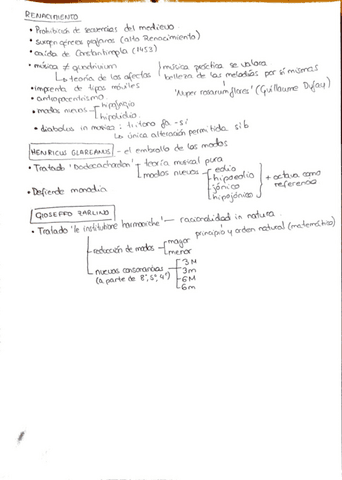 RENACIMIENTO
• Prohibición de secuencias del medievo
• surgen géneros profanos (alto Renacimiento)
• caída de Constantinopla (1453)
• música ≠ quadrivium
música práctica se valora
↳ teoría de los afectos
belleza de las melodías por sí mismas
• imprenta de tipos móviles
"Nuper rosarum flores" (Guillaume Dufay)
• antropocentrismo
• modos nuevos hipofrigio
hipolidio
• diabolus in musica: tritono fa-si
↳ única alteración permitida si b
HENRICUS GLAREANUS - el embrollo de los modos
• Tratado 'Dodecachordon' teoría musical pura
modos nuevos eolio
hipoeolio
jónico
hipojónico
+ octava como referencia
• Defiende monodia
GIOSEFFO ZARLINO
• Tratado 'le institutione harmoniche' — racionalidad in natura
principio y orden natural (matemático)
reducción de modos mayor
menor
nuevas consonancias
(a parte de 8ª, 5ª, 4ª)
3M
3m
6M
6m